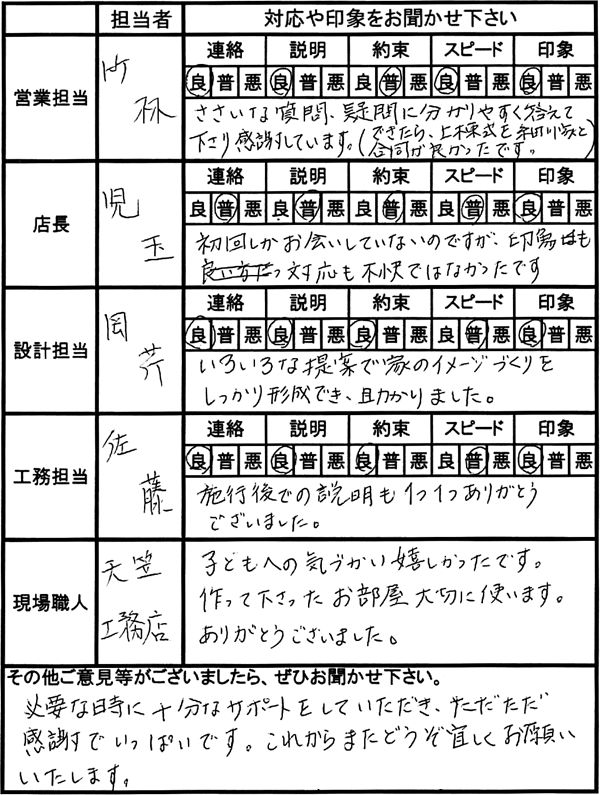 担当者 対応や印象をお聞かせ下さい
営業担当 竹林
連絡 説明 約束 スピード 印象
良 普 悪 良 普 悪 良 普 悪 良 普 悪 良 普 悪
ささいな質問、疑問に分かりやすく答えて
下さり感謝しています。(できたら、上棟式を 家と
合同が良かったです。)
店長 児玉
連絡 説明 約束 スピード 印象
良 普 悪 良 普 悪 良 普 悪 良 普 悪 良 普 悪
初回しかお会いしていないのですが、印象も
対応も不快ではなかったです
設計担当 岡芹
連絡 説明 約束 スピード 印象
良 普 悪 良 普 悪 良 普 悪 良 普 悪 良 普 悪
いろいろな提案で家のイメージづくりを
しっかり形成でき、助かりました。
工務担当 佐藤
連絡 説明 約束 スピード 印象
良 普 悪 良 普 悪 良 普 悪 良 普 悪 良 普 悪
施行後での説明も1つ1つありがとう
ございました。
現場職人 天笠工務店
子どもへの気づかい嬉しかったです。
作って下さったお部屋大切に使います。
ありがとうございました。
その他ご意見等がございましたら、ぜひお聞かせ下さい。
必要な時に十分なサポートをしていただき、ただただ
感謝でいっぱいです。これからまたどうぞ宜しくお願い
いたします。